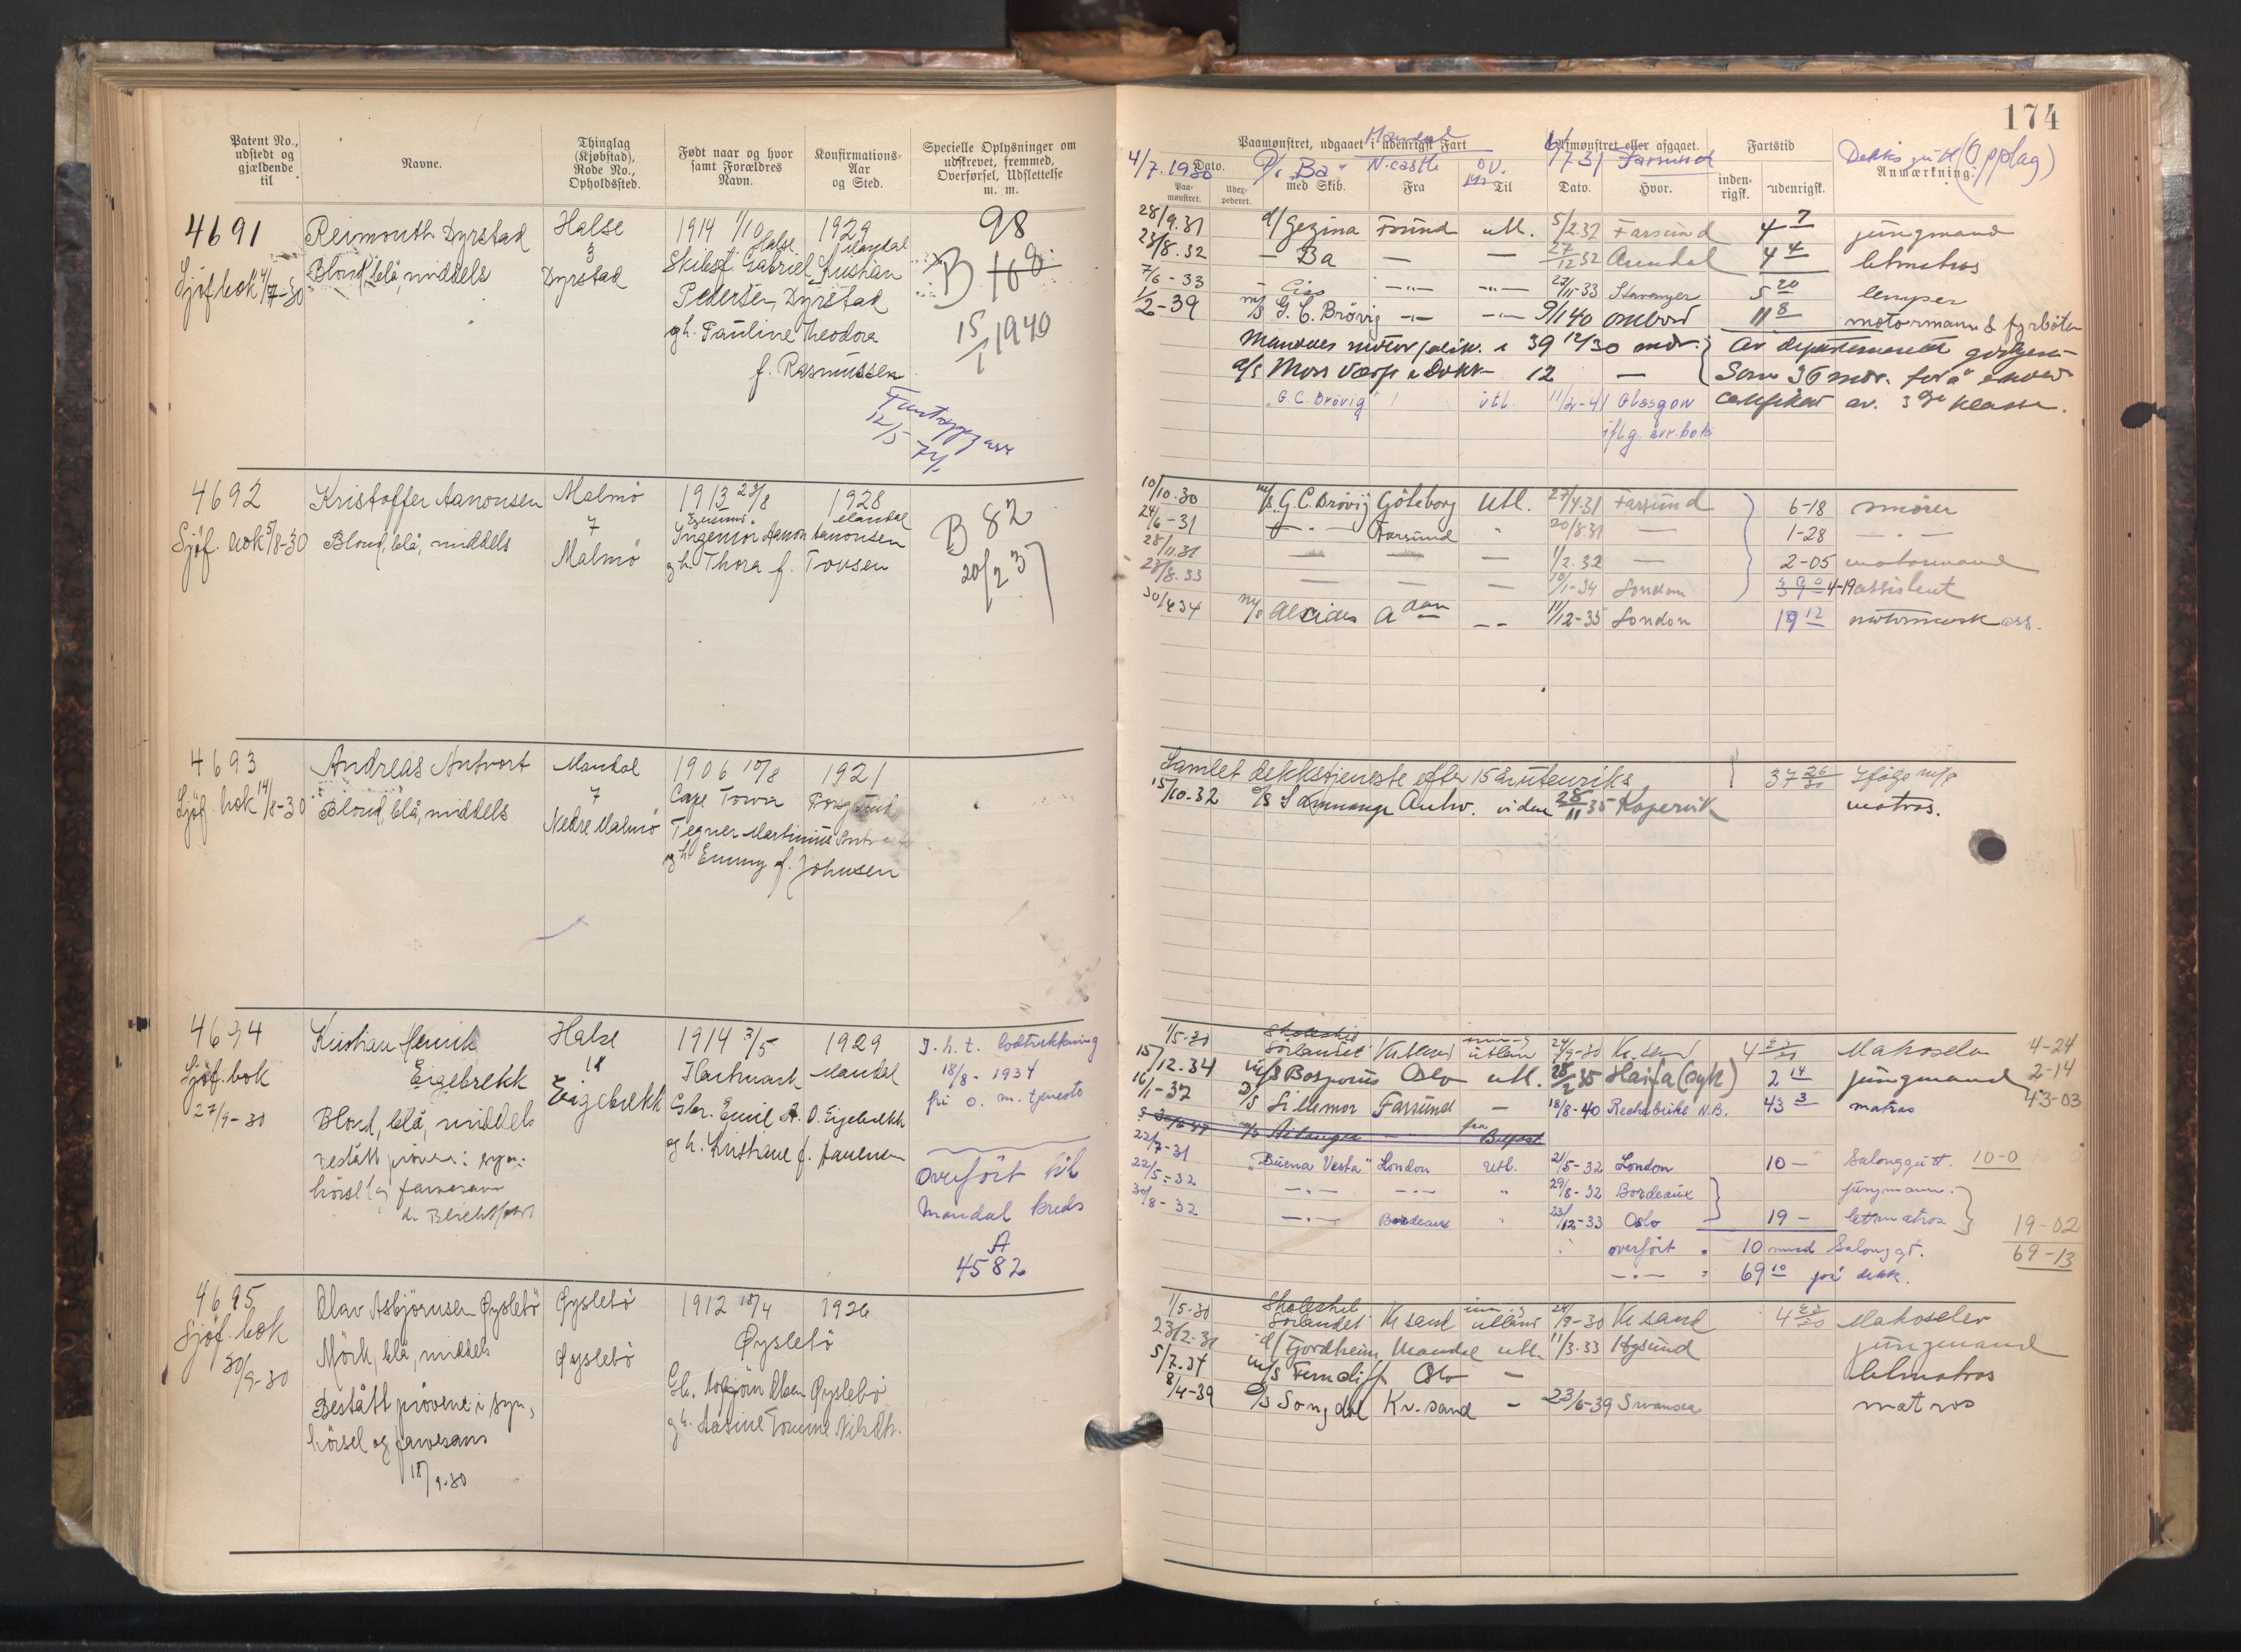 174
Patent No., udstedt og gjældende til
Navne.
Thinglag (Kjøbstad), Rode No., Opholdssted.
Født naar og hvor samt Forældres Navn.
Konfirmations-Aar og Sted.
Specielle Oplysninger om udskrevet, fremmed, Overførsel, Udslettelse m. m.
4691
Sjöf. bok 4/7-30
Reimonth Dyrstad
Blond, blå, middels
Halse
3
Dyrstad
1914 1/10
Halse
Skibsf. Gabriel Kristian
Pedersen, Dyrstad
g h. Pauline Theodora
f. Rasmussen
1929
Mandal
98
B 168
15/1 1940
12/5 74
4692
Sjöf. bok 5/8-30
Kristoffer Aanonsen
Blond, blå, middels
Malmö
7
Malmö
1913 23/8
Ingeniör Aanon Aanonsen
g h. Thora f. Tovsen
1928
Mandal
B 82
20/2 37
4693
Sjöf. bok 14/8-30
Andreas Antvort
Blond, blå, middels
Mandal
7
Nedre Malmö
1906 10/8
Cape Town
Tegner Martinius
g h. Emmy f. Johnsen
1921
4694
Sjöf. bok
27/9-30
Kristian Henrik
Eigebrekk
Blond, blå, middels
Bestått prøven i syn,
hörsel og farvesans
Halse
11
Eigebrekk
1914 3/5
Hartmark
Gbr. Emil A. O. Eigebrekk
g h. Kristiane f. Aanensen
1929
Mandal
I. h. t. loddtrekkning
18/8-1934
fri o. m. tjeneste
Overfört til
Mandal kreds
A
4582
4695
Sjöf. bok
30/9-30
Olav Asbjörnsen Øyslebö
Mörk, blå, middels
Bestått prövene i syn,
hörsel og farvesans
18/9-30
Øyslebö
Øyslebö
1912 18/4
Øyslebö
Gb. Asbjörn Olsen Øyslebö
g h. Aasine Tomine Nilsdtr.
1926
Paamønstret, udgaaet i udenrigsk Fart
Afmønstret eller afgaaet.
Fartstid
Anmærkning.
Dato.
Paamønstret.
med Skib.
Fra
Til
Dato.
Hvor.
indenrigsk.
udenrigsk.
4/7.1930 "Ba" N.castle 6/7 31 Farsund Dekksgutt (Opplag)
28/9.31 d/ Gezina Fsund utl. 5/2.32 Farsund 4 7 jungmand
23/8.32 - Ba — — 27/12 32 Arendal 4 4 letmatros
7/6-33 - Ciss -"- -"- 27/11-33 Stavanger 5 20 lemper
1/2-39 m/s G. C. Brövig -"- -"- 9/1 40 ombord 11 8 motormann & fyrböter
Mandals motorfabrik. i 39 12/30 mdr. Av departementet godkjent
a/s Moss Værft & Dokk 12 — Som 36 mdr. for å erholde
"G. C. Brövig" utl. 11/2-41 Glasgow certifikat av. 3dje klasse.
iflg. avr. bok
10/10.30 m/s G. C. Brövig Göteborg utl. 27/4.31 Farsund 6-18 smörer
24/6-31 -"- Farsund " 20/8.31 — 1-28 -"-
28/11.31 — — — 1/2.32 — 2-05 motormand
23/8.33 — — 10/1-34 London 4-19 assistent
30/4 34 m/s Alcides -- 11/12-35 London 19 12 motormask ass.
Samlet dekkstjeneste efter 15 år utenriks 37 26/30 Ifölge
15/10.32 d/s Samnanger Antw. viden 28/11 35 Kopervik matros.
1/5-30 Skoleskib Sörlandet Kr.sand inn- og utland 24/9-30 Kr.sand 4 23/30 Matroselev 4-24
15/12.34 m/s Bosporus Oslo utl. 28/2 35 Haifa (syk) 2 14 jungmand 2-14
16/1-37 d/s Lillemor Farsund — 18/8-40 N.B. 43 3 matros 43-03
fra Belfast
22/7-31 "Buena Vesta" London utl. 21/5-32 London 10 - Salonggutt. 10-0
22/5-32 -"- -"- " 29/8-32 Bordeaux jungmann.
30/8-32 -"- Bordeaux " 23/12-33 Oslo 19 - lettmatros 19-02
overfört 10 mnd Salonggt. 69-13
-"- 69 10 på dekk.
1/5-30 Skoleskib Sörlandet Kr sand inn- og utland 24/9-30 Kr sand 4 23/30 Matroselev
23/2-31 d/ Fjordheim Mandal utl. 11/3.33 jungmand
5/7-34 m/s Ferncliff Oslo — letmatros
8/4-39 D/s Songdal Kr.sand - 23/6-39 Swansea matros